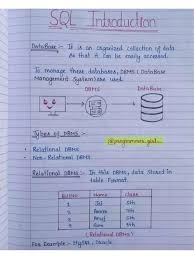 SQL Introduction
DataBase :- It is an organized collection of data
so that it can be easily accessed.
To manage these databases, DBMS (DataBase
Management System) are used
DBMS
DBMS
Types of DBMS :-
@programmers_global_
• Relational DBMS
• Non-Relational DBMS
Relational DBMS :- In this DBMS, Data stored in
table Format.
Name
Class
5th
6th
5th
8th
(Relational DBMS)
For Example :- MySQL, Oracle